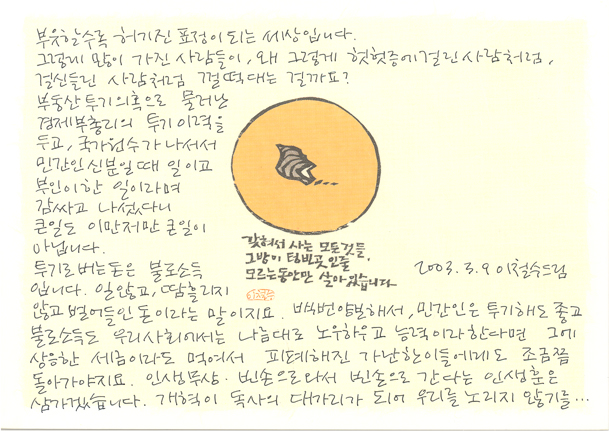 부유할수록 허기진 표정이 되는 세상입니다.
그렇게 많이 가진 사람들이, 왜 그렇게 헛헛증에 걸린 사람처럼,
걸신들린 사람처럼 껄떡대는 걸까요?
부동산 투기의혹으로 물러난
경제부총리의 투기이력을
두고, 국가원수가 나서서
민간인 신분일 때 일이고
부인이 한 일이라며
감싸고 나섰다니
큰일도 이만저만 큰일이
아닙니다.
갇혀서 사는 모든 것들,
그 방이 텅 빈 곳인줄
모르는 동안만 살아있습니다
2003.3.9 이철수드림
투기로 버는 돈은 불로소득
입니다. 일않고, 땀흘리지
않고 벌어들인 돈이라는 말이지요. 백번양보해서, 민간인은 투기해도 좋고
불로소득도 우리사회에서는 나름대로 노우하우고 능력이라 한다면 그에
상응한 세금이라도 먹여서 피폐해진 가난한 이들에게도 조금쯤
돌아가야지요. 인생무상·빈손으로 와서 빈손으로 간다는 인생훈은
삼가겠습니다. 개혁이 독사의 대가리가 되어 우리를 노리지 않기를…